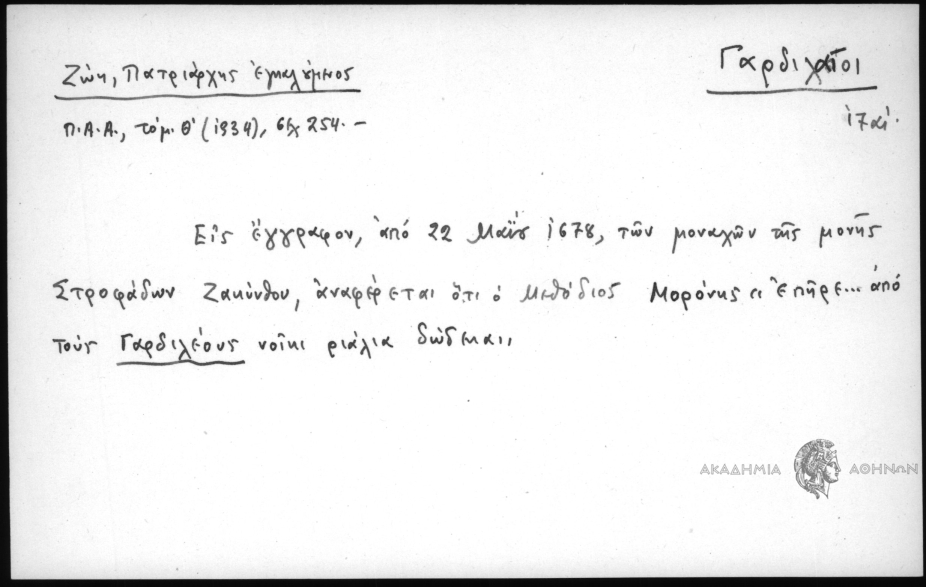 Ζώη, Πατριάρχης ἐγκαλούμενος
Γαρδιχαῖοι
Π.Α.Α., τόμ. Θ' (1934), σελ 254. –
17 αἰ.
Εἰς ἔγγραφον, ἀπό 22 Μαΐου 1678, τῶν μοναχῶν τῆς μονῆς
Στροφάδων Ζακύνθου, ἀναφέρεται ὅτι ὁ Μεθόδιος Μορόνης "ἐπῆρε... ἀπό
τούς Γαρδιλέους νοῖκι ριάλια δώδεκα"
ΑΚΑΔΗΜΙΑ ΑΘΗΝΩΝ